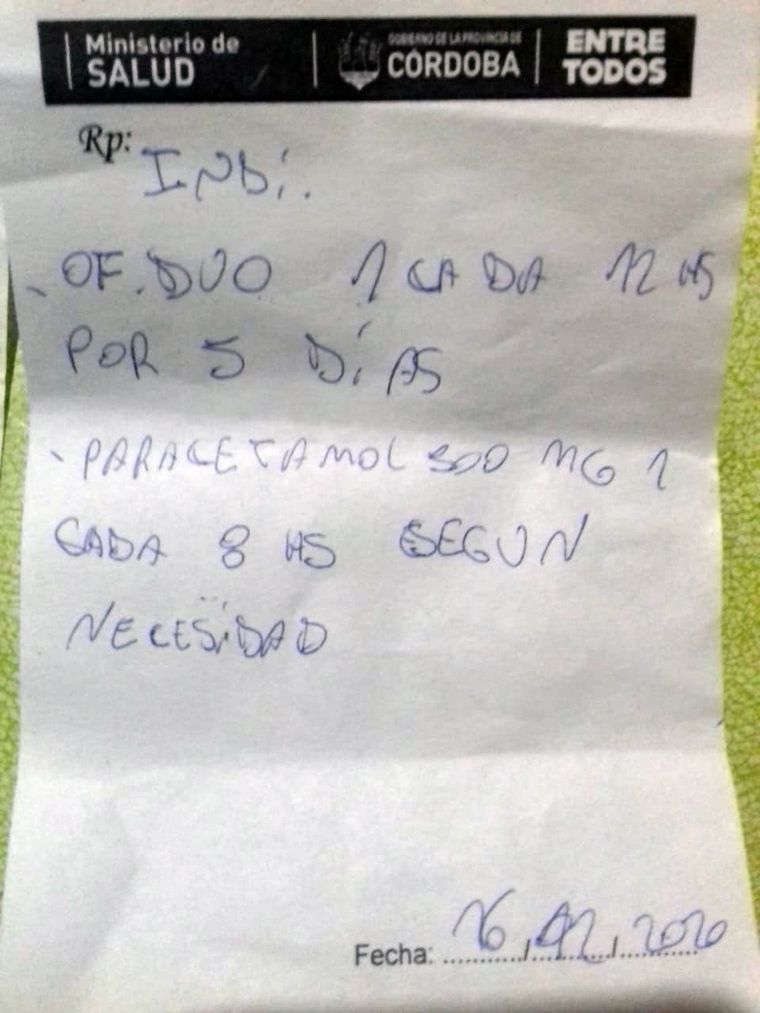 Ministerio de
SALUD
GOBIERNO DE LA PROVINCIA DE
CÓRDOBA
ENTRE
TODOS
Rp:
INDi.
- OF. DUO 1 CADA 12 HS
POR 5 DÍAS
- PARACETAMOL 500 MG 1
CADA 8 HS SEGUN
NECESiDAD
Fecha: 16, 12, 2020